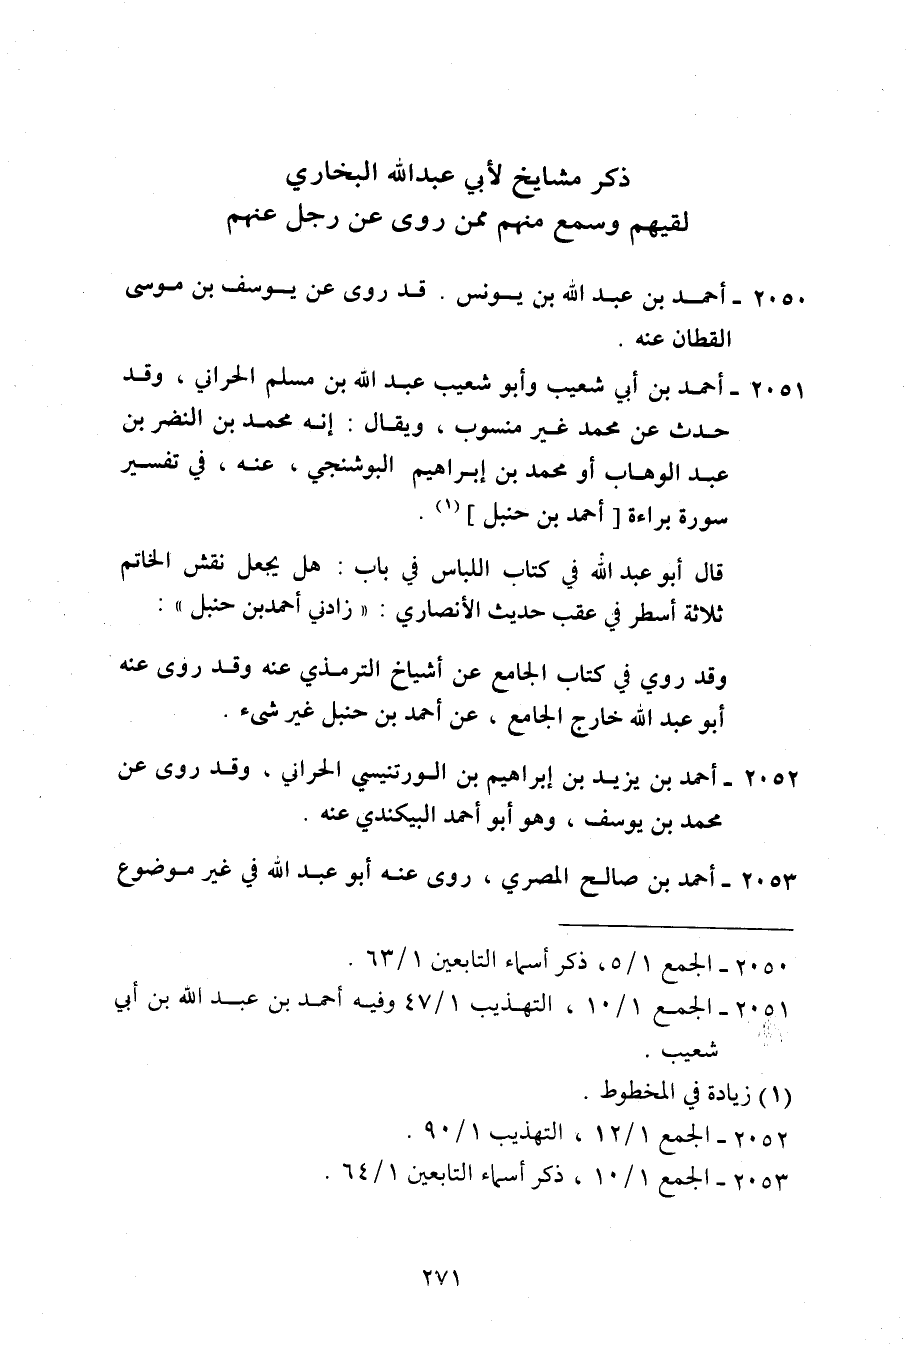 ذكر مشايخ لأبي عبدالله البخاري
لقيهم وسمع منهم ممن روى عن رجل عنهم
٢٠٥٠ ـ أحمد بن عبد الله بن يونس . قد روى عن يوسف بن موسى
القطان عنه .
٢٠٥١ ـ أحمد بن أبي شعيب وأبو شعيب عبد الله بن مسلم الحراني ، وقد
حدث عن محمد غير منسوب ، ويقال : إنه محمد بن النضر بن
عبد الوهاب أو محمد بن إبراهيم البوشنجي ، عنه ، في تفسير
سورة براءة [ أحمد بن حنبل ] (١) .
قال أبو عبد الله في كتاب اللباس في باب : هل يجعل نقش الخاتم
ثلاثة أسطر في عقب حديث الأنصاري : « زادني أحمدبن حنبل » :
وقد روي في كتاب الجامع عن أشياخ الترمذي عنه وقد روى عنه
أبو عبد الله خارج الجامع ، عن أحمد بن حنبل غير شىء .
٢٠٥٢ ـ أحمد بن يزيد بن إبراهيم بن الورتنيسي الحراني ، وقد روى عن
محمد بن يوسف ، وهو أبو أحمد البيكندي عنه .
٢٠٥٣ ـ أحمد بن صالح المصري ، روى عنه أبو عبد الله في غير موضوع
٢٠٥٠ ـ الجمع ٥/١، ذكر أسماء التابعين ٦٣/١ .
٢٠٥١ ـ الجمع ١٠/١ ، التهذيب ٤٧/١ وفيه أحمد بن عبد الله بن أبي
شعيب .
(١) زيادة في المخطوط .
٢٠٥٢ ـ الجمع ١٢/١ ، التهذيب ٩٠/١ .
٢٠٥٣ ـ الجمع ١٠/١ ، ذكر أسماء التابعين ٦٤/١ .
٢٧١